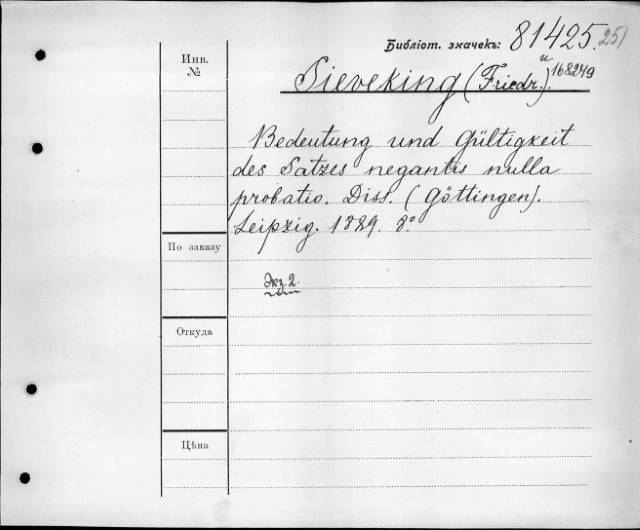 Библіот. значекъ: 81425. 251
и 168249
Инв.
№
Sieveking (Friedr.).
Bedeutung und Gültigkeit
des Satzes negantis nulla
probatio. Diss. (Göttingen).
Leipzig. 1889. 8º
По заказу
Экз. 2
Откуда
Цѣна